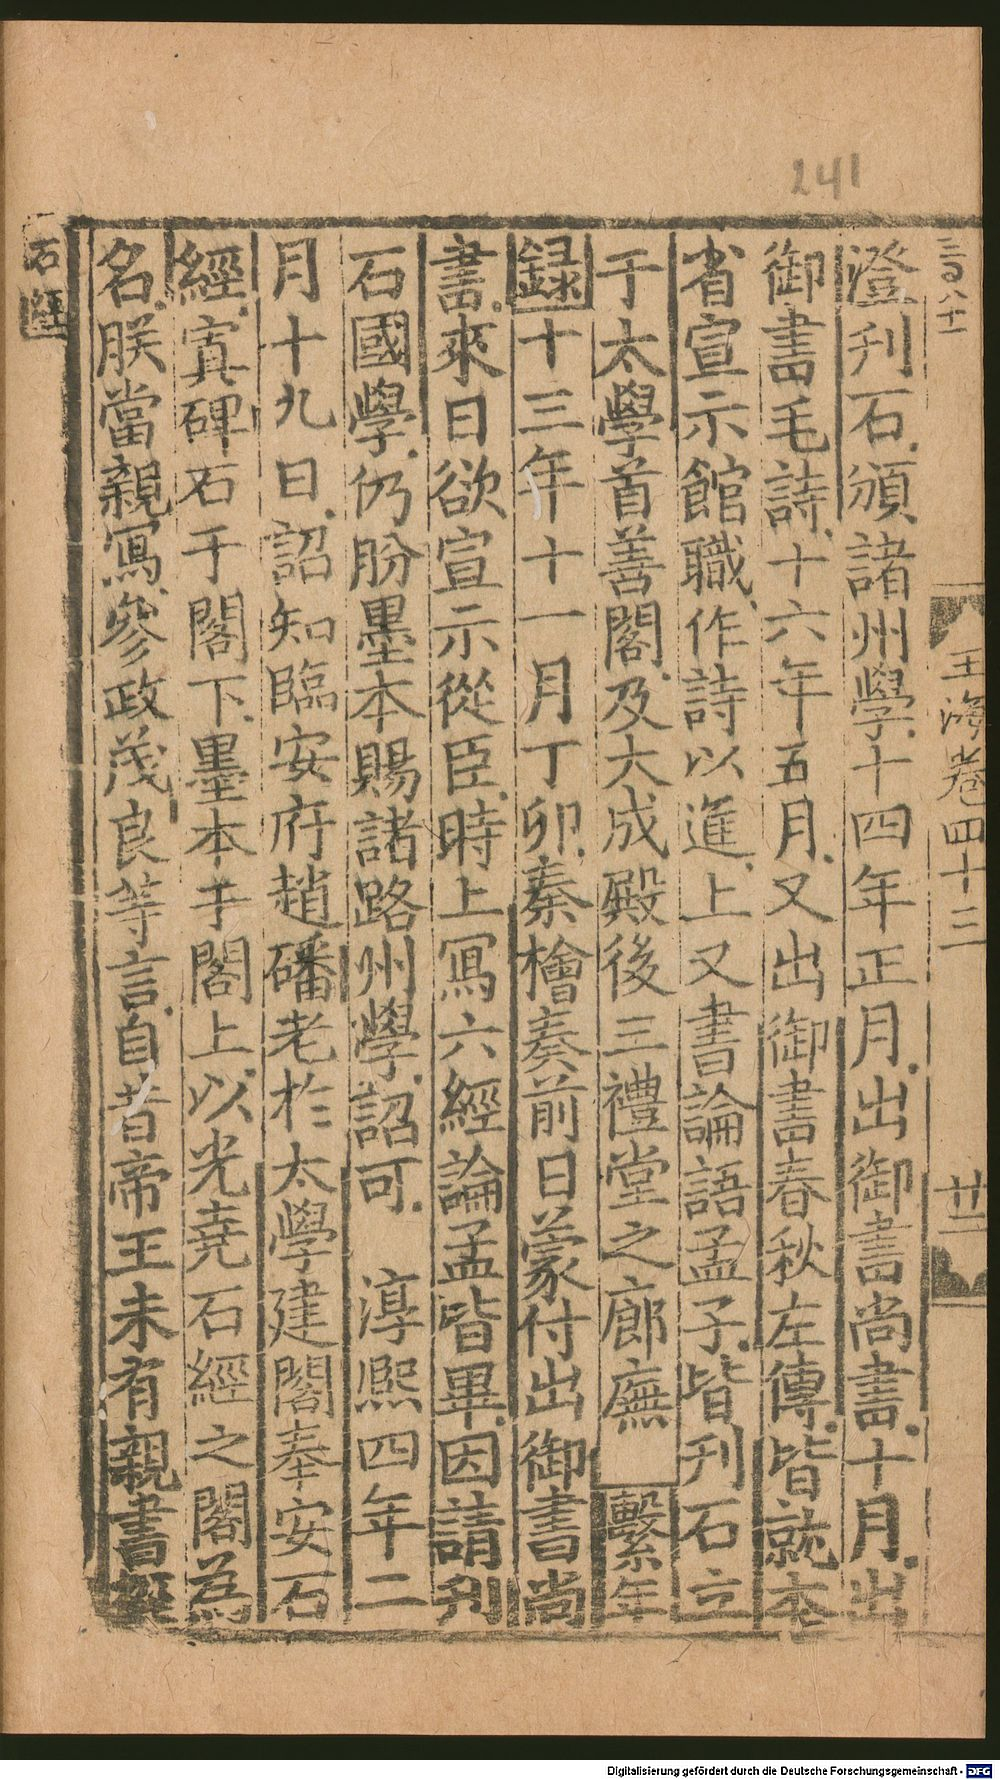 241
玉海卷四十三
廿二
澄刋石頒諸州學十四年正月出御書尚書十月出
御書毛詩十六年五月又出御書春秋左傳皆就本
省宣示館職作詩以進上又書論語孟子皆刋石立
于太學首善閣及大成殿後三禮堂之廊廡 繫年
録十三年十一月丁卯秦檜奏前日蒙付出御書尚
書來日欲宣示從臣時上寫六經論孟皆畢因請刋
石國學仍肦墨本賜諸路州學詔可 淳熙四年二
月十九日詔知臨安府趙磻老於太學建閣奉安石
經寘碑石于閣下墨本于閣上以光堯石經之閣為
名朕當親寫參政茂良等言自昔帝王未有親書經
石經
Digitalisierung gefördert durch die Deutsche Forschungsgemeinschaft - DFG